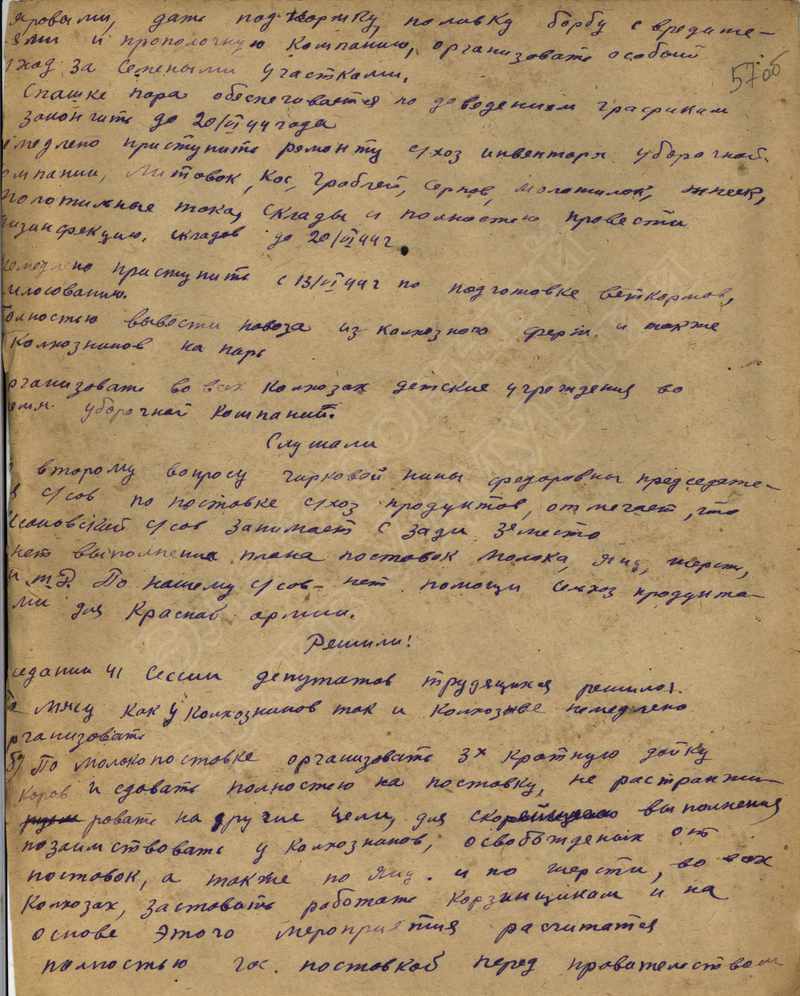 яровыми, дать подкормку, половку борбу с вредите-
ями и прополочную компанию, организовать особый
уход за семеными участками.
57об
Спашке пара обеспечивается по доведеным графикам
закончить до 20/VI 44 года
емедлено приступить ремонту с/хоз инвентаря уборочной
омпании, литовок, кос, граблей, серпов, молотилок, жнеек,
молотильные тока, склады и полностью провести
дизинфекцию, складов до 20/VI 44 г.
емедлено приступить с 13/VI 44 г по подготовке веткормов,
илосованию.
олностью вывости навоза из колхозного ферм и также
колхозников на пары
рганизовать во всех колхозах детские учреждения во
емя уборочной компаний.
Слушали
второму вопросу чирковой нины федоровны председате-
я с/сов по поставке с/хоз продуктов, отмечает, что
с/сов занимает с зади 3 место
нет выполнения плана поставок молока, яиц, шерсти,
и т.д. По нашему с/сов- нет помощи сельхоз продукта-
ми для Красной армии.
Решили:
седании 41 сессии депутатов трудящихся решила.
мясу как у колхозников так и колхозы немедлено
рганизовать
б) По молокопоставке организовать 3х кратную дойку
коров и сдовать полностью на поставку, не растранжи-
ровать на другие цели, для скорейшего выполнения
позаимствовать у колхозников, освобожденых от
поставок, а также по яиц. и по шерсти, во всех
колхозах, заставать работать корзинщикам и на
основе этого мероприятия расчитатся
полностью гос. поставкой перед провательством